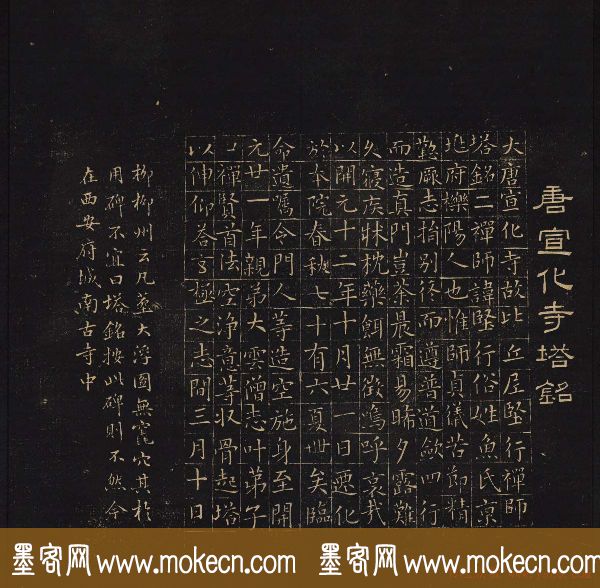 唐宣化寺塔銘
大唐宣化寺故比丘尼堅行禪師
塔銘二禪師諱堅行俗姓魚氏京
府櫟陽人也惟師貞儀苦節精
懃厥志捐別俗而遵普道歛四行
而造真門豈荼晨霜易晞夕露難
久寢疾牀枕藥餌無徵嗚呼哀哉
以開元十二年十月廿一日遷化
於本院春秋七十有六夏卌矣臨
命遺囑令門人等造空施身至開
元廿一年親弟大雲僧志叶弟子
禪賢首法空淨意等收骨起塔
以伸仰荅極之志閏三月十日
柳柳州云凡葬大浮圖無竁穴其於
用碑不宜曰塔銘按此碑則不然今
在西安府城南古寺中
墨客网 www.mokecn.com 墨客网 www.mokecn.com